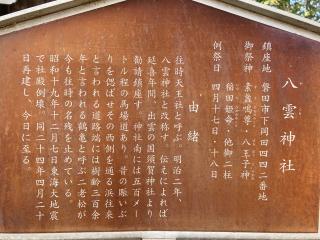 八雲神社
鎮座地 磐田市下岡田四四二番地
御祭神 素盞嗚尊・八王子神
稲田姫命・他御二柱
例祭日 四月十七日・十八日
由緒
往時天王社と呼ぶ。明治二年、
八雲神社と改称す。伝えによれば
延喜年間、出雲の国須賀神社より
勧請鎮座す。神社南には五百メー
トル程の馬場道あり、昔の賑ぶ
りを偲ばせその西側を通る浜往来
と言われる道路界には樹齢三百余
年と言われる鶴亀と呼ぶ二老松が
今も往時の名残を止めている。
昭和十九年十二月七日東海大地震
で社殿倒壊。同二十四年四月二十
日再建し、今日に至る。